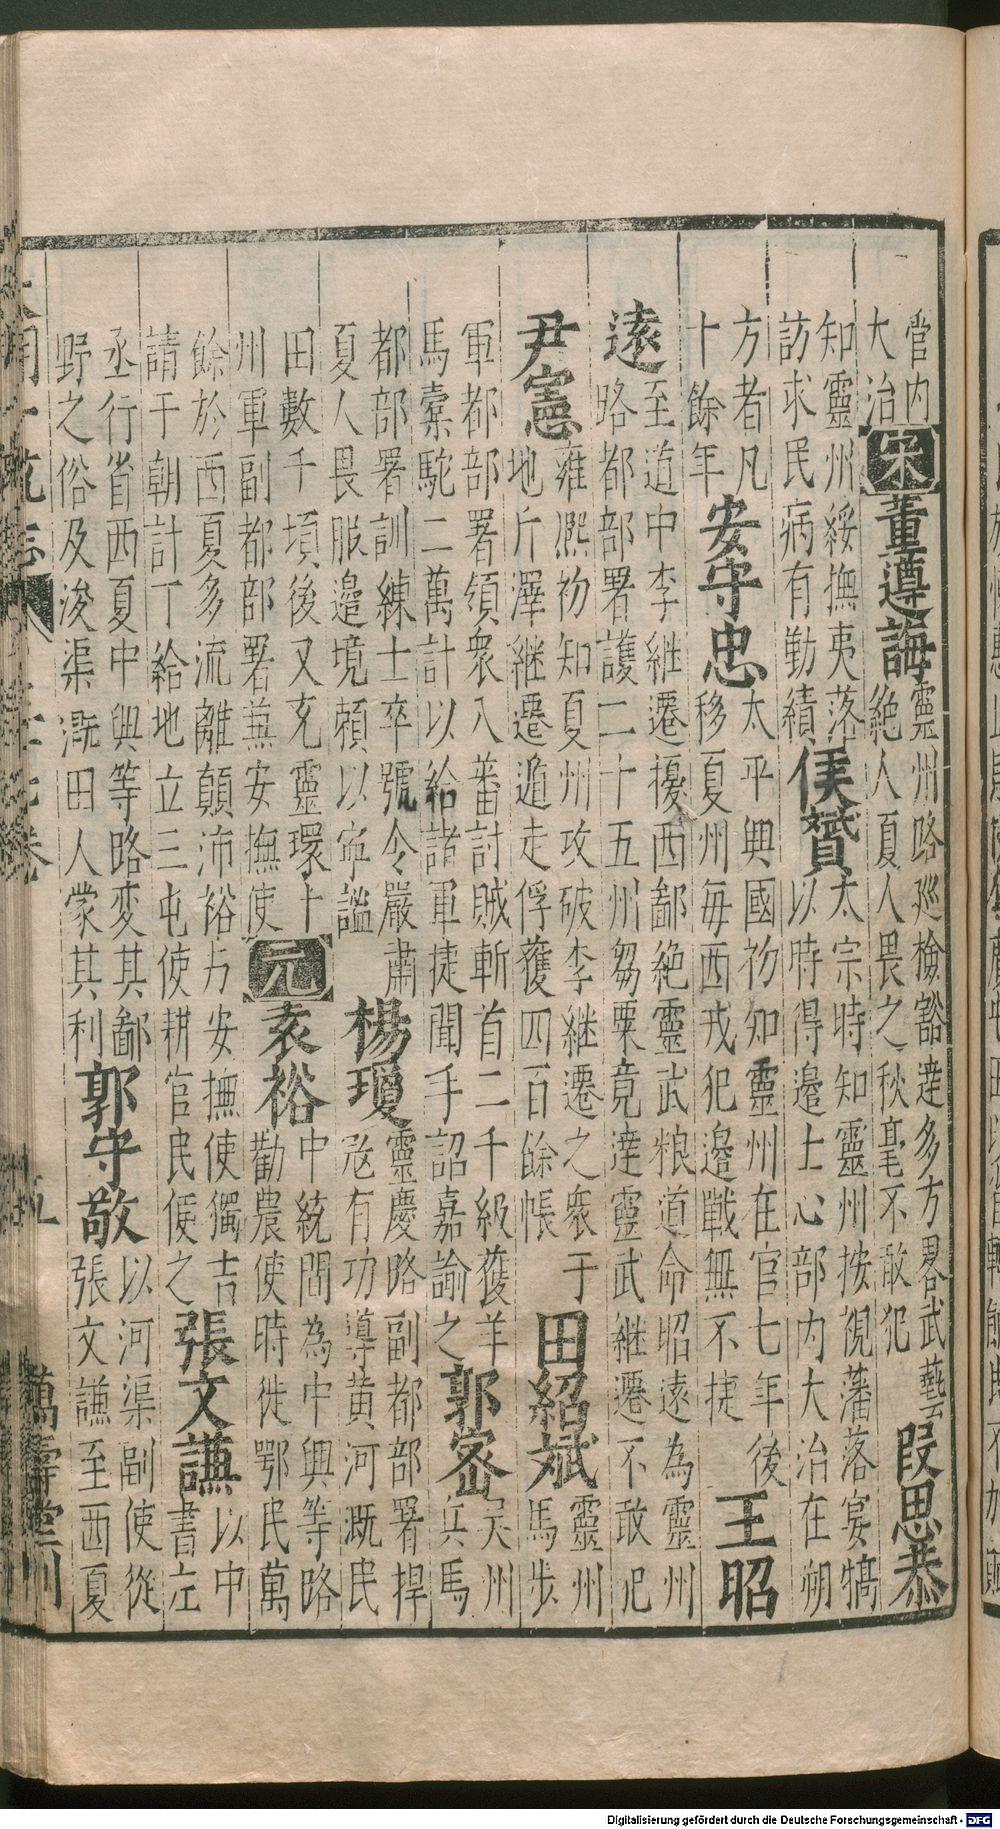 管内
大治
宋董遵誨
靈州路巡檢豁達多方畧武藝
絶人夏人畏之秋毫不敢犯
段思恭
知靈州綏撫夷落
訪求民病有勤績
侯贇
太宗時知靈州按視藩落宴犒
以時得邊上心部内大治在朔
方者凡
十餘年
安守忠
太平興國初知靈州在官七年後
移夏州每西戎犯邊戰無不捷
王昭
遠
至道中李繼遷擾西鄙絶靈武粮道命昭遠為靈州
路都部署護二十五州芻粟竟達靈武繼遷不敢犯
尹憲
雍熈初知夏州攻破李繼遷之衆于
地斤澤継遷遁走俘獲四百餘帳
田紹斌
靈州
馬步
軍都部署領衆入蕃討賊斬首二千級獲羊
馬橐駝二萬計以給諸軍捷聞手詔嘉諭之
郭密
州
兵馬
都部署訓練士卒號令嚴肅
夏人畏服邉境頼以寕謐
楊瓊
靈慶路副都部署捍
冦有功導黄河溉民
田數千頃後又充靈環十
州軍副都部署兼安撫使
元袁裕
中統間為中興等路
勸農使時徙鄂民萬
餘於西夏多流離顛沛裕与安撫使獨吉
請于朝計丁給地立三屯使耕官民便之
張文謙
以中
書左
丞行省西夏中興等路変其鄙
野之俗及浚渠溉田人蒙其利
郭守敬
以河渠副使從
張文謙至西夏
大明一統志
卷
五
萬壽堂刊
Digitalisierung gefördert durch die Deutsche Forschungsgemeinschaft - DFG